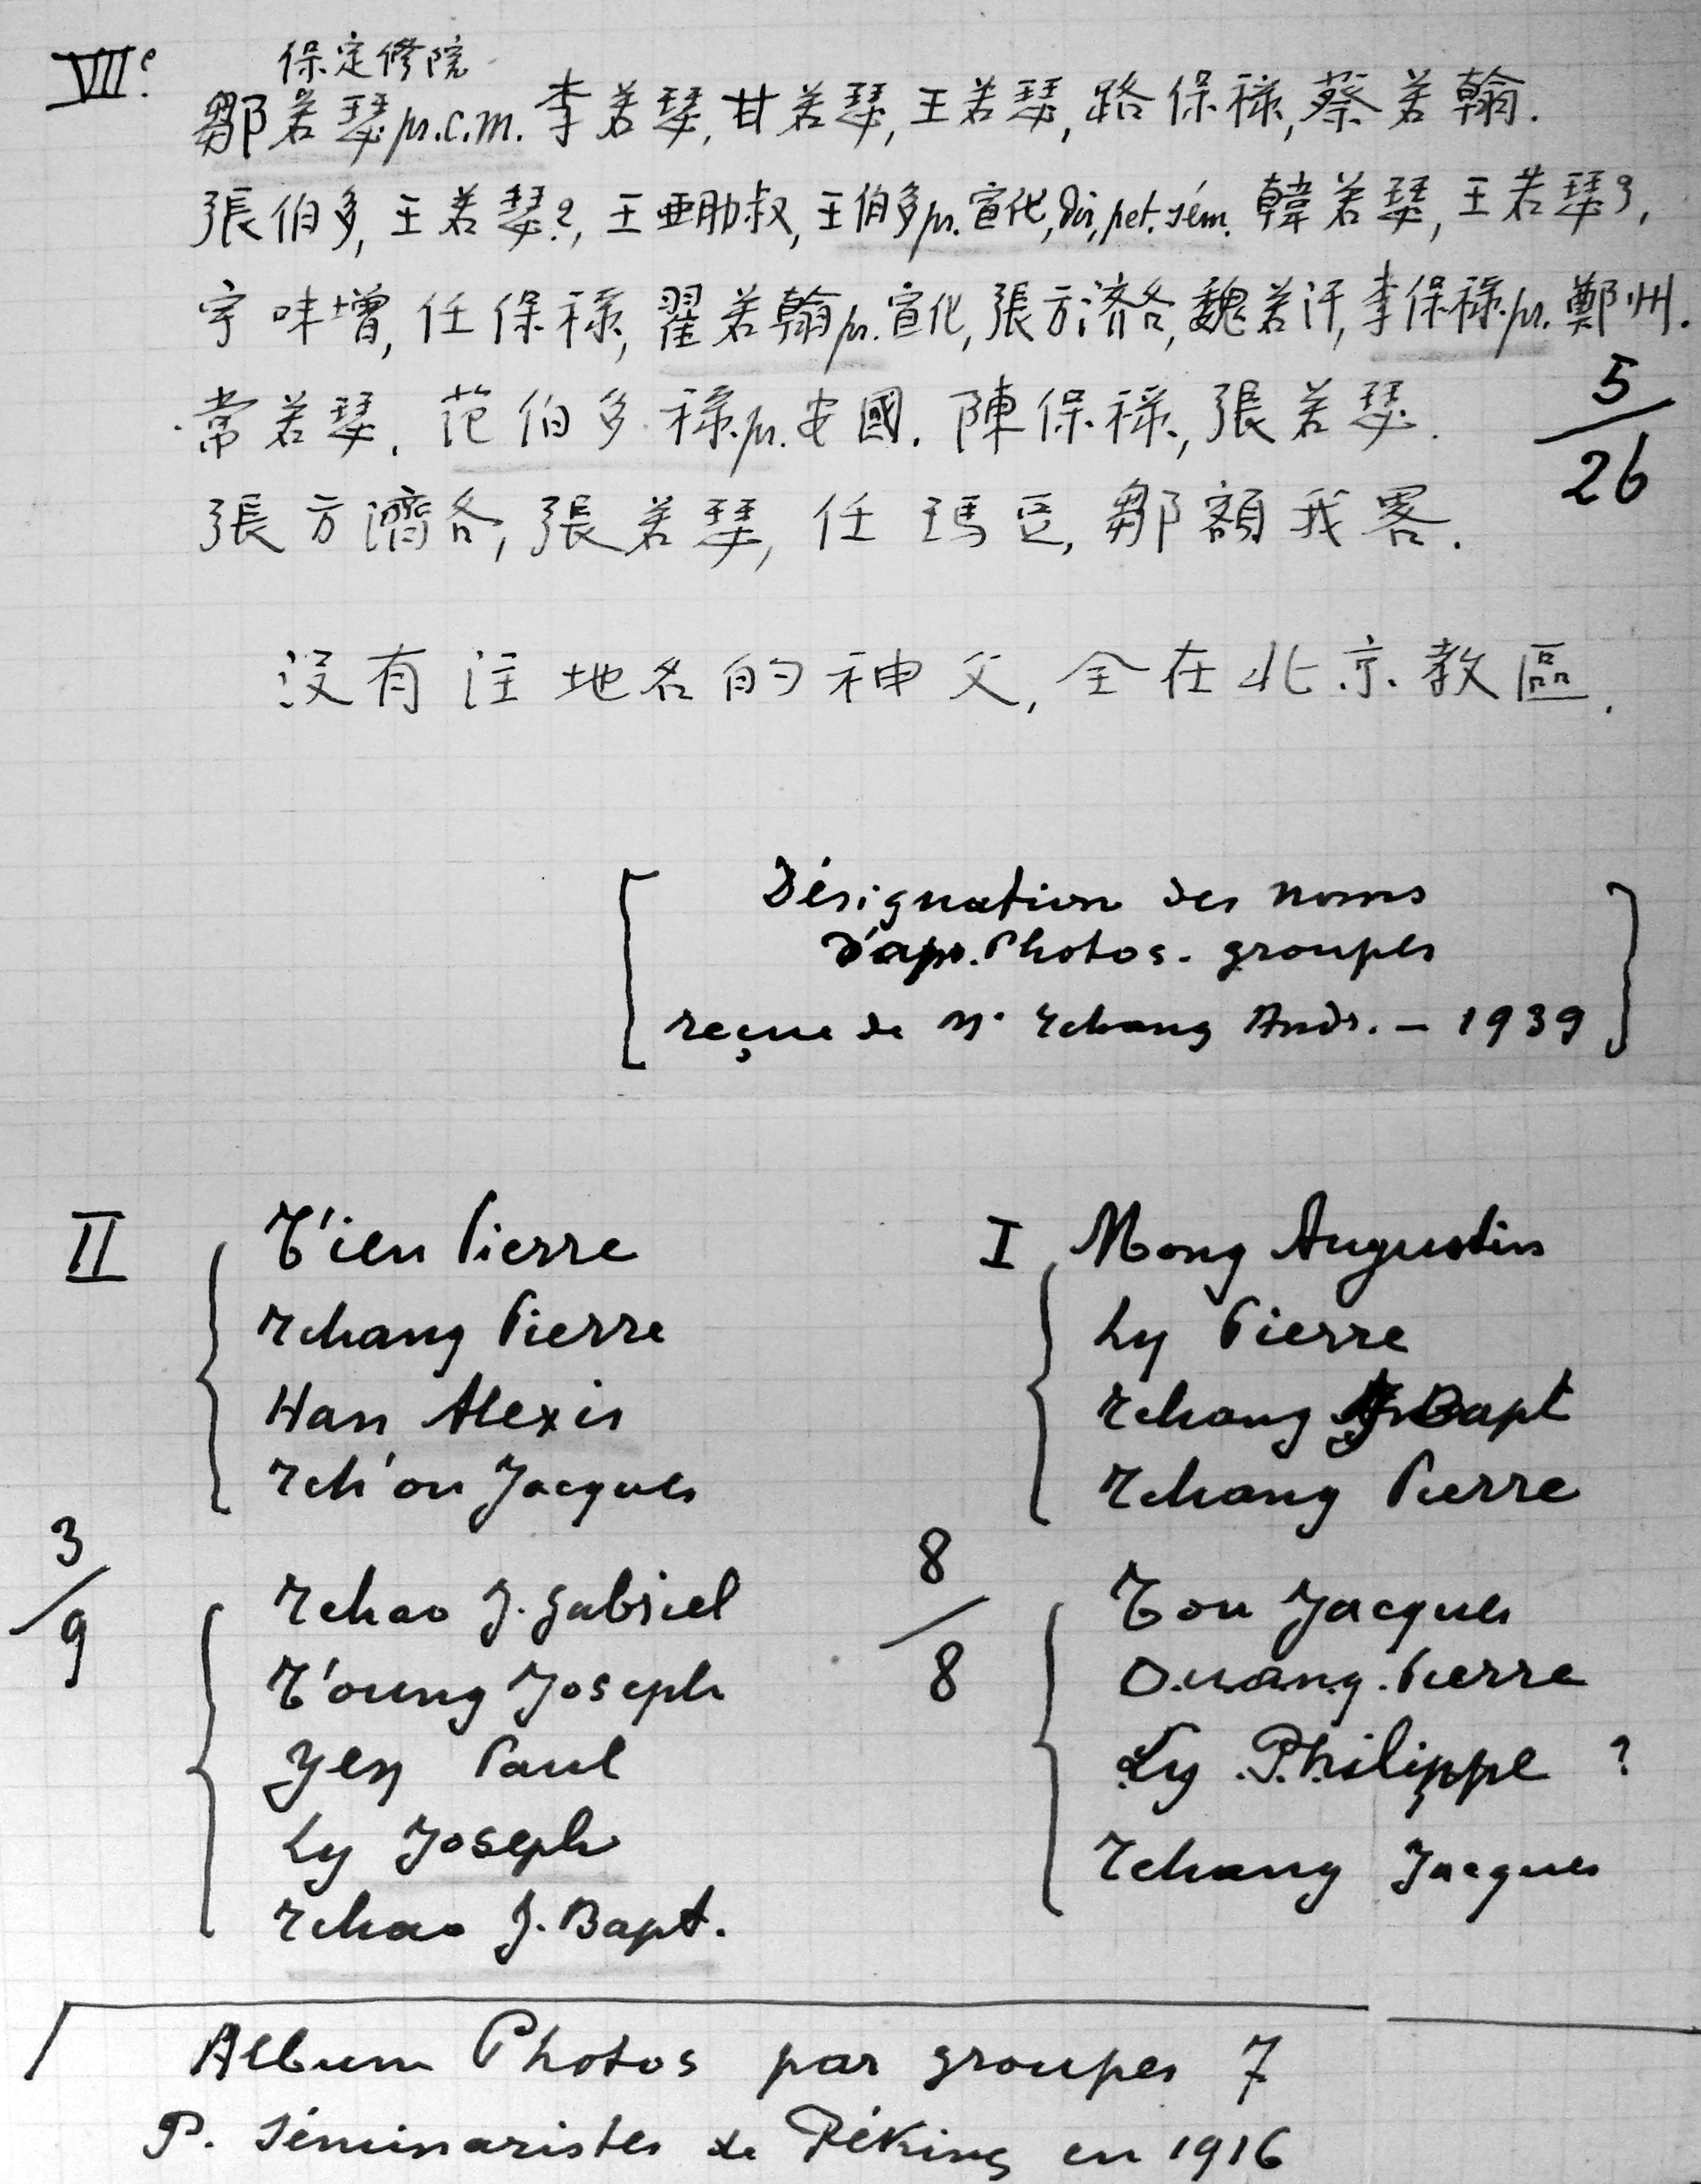 VII.e 保定修院
鄒若瑟 pr.c.m. 李若瑟, 甘若瑟, 王若瑟, 路保祿, 蔡若翰.
張伯多, 王若瑟?, 王亞肋叔, 王伯多 pr. 宣化, Dir. pet. sém. 韓若瑟, 王若瑟?,
宇味增, 任保祿, 翟若翰 pr. 宣化, 張方济各, 魏若汗, 李保祿 pr. 鄭州.
常若瑟. 范伯多祿 pr. 安國. 陳保祿, 張若瑟.
5/26
張方濟各, 張若瑟, 任瑪豆, 鄒額我畧.
没有注地名的神父, 全在北京教區.
Désignation des noms
d'apr. Photos. groupes
reçue de M. Tchang Andr. – 1939
II
T'ien Pierre
Tchang Pierre
Han Alexis
Tch'ou Jacques
3/9
Tchao J. Gabriel
T'oung Joseph
Yen Paul
Ly Joseph
Tchao J. Bapt.
I Mong Augustin
Ly Pierre
Tchang J. Bapt
Tchang Pierre
8/8
Tou Jacques
Ouang Pierre
Ly Philippe ?
Tchang Jacques
Album Photos par groupes 7
P. Séminaristes de Péking en 1916